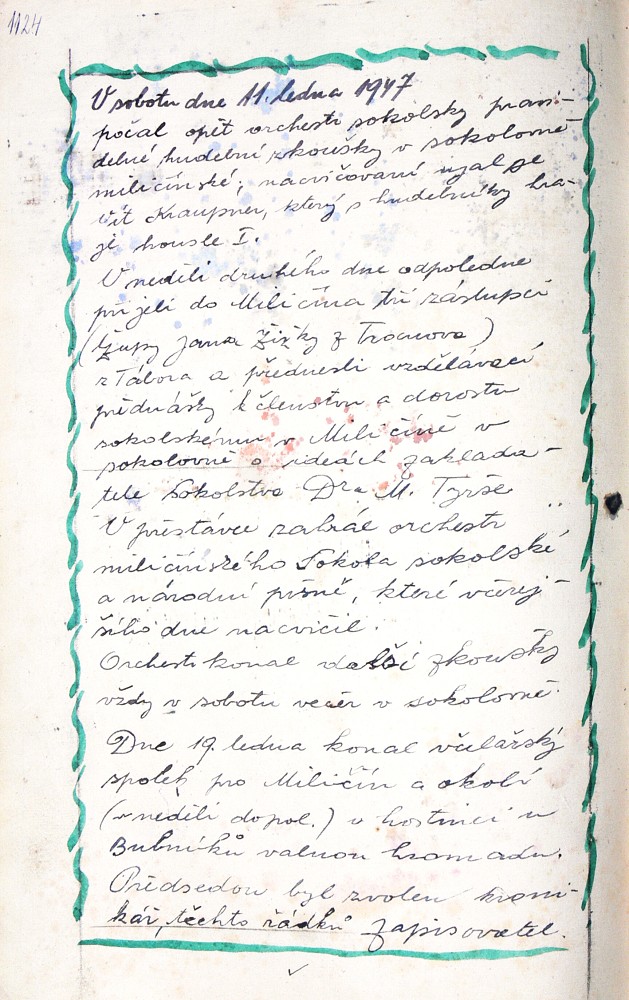 1124
V sobotu dne 11. ledna 1947
počal opět orchestr sokolský pravi-
delné hudební zkoušky v sokolovně
miličínské; nacvičování ujal se
Vít Kraupner, který s hudebníky hra-
je housle I.
V neděli druhého dne odpoledne
přijeli do Miličína tři zástupci
(Župy Jana Žižky z Trocnova)
z Tábora a přednesli vzdělávací
přednášky k členstvu a dorostu
sokolskému v Miličíně v
sokolovně o ideách zaklada-
tele Sokolstva Dra M. Tyrše.
V přestávce zahrál orchestr
miličínského Sokola sokolské
a národní písně, které včerej-
šího dne nacvičil.
Orchestr konal další zkoušky
vždy v sobotu večer v sokolovně.
Dne 19. ledna konal včelařský
spolek pro Miličín a okolí
(v neděli dopol.) v hostinci u
Bubníků valnou hromadu.
Předsedou byl zvolen kroni-
kář, těchto řádků zapisovatel.